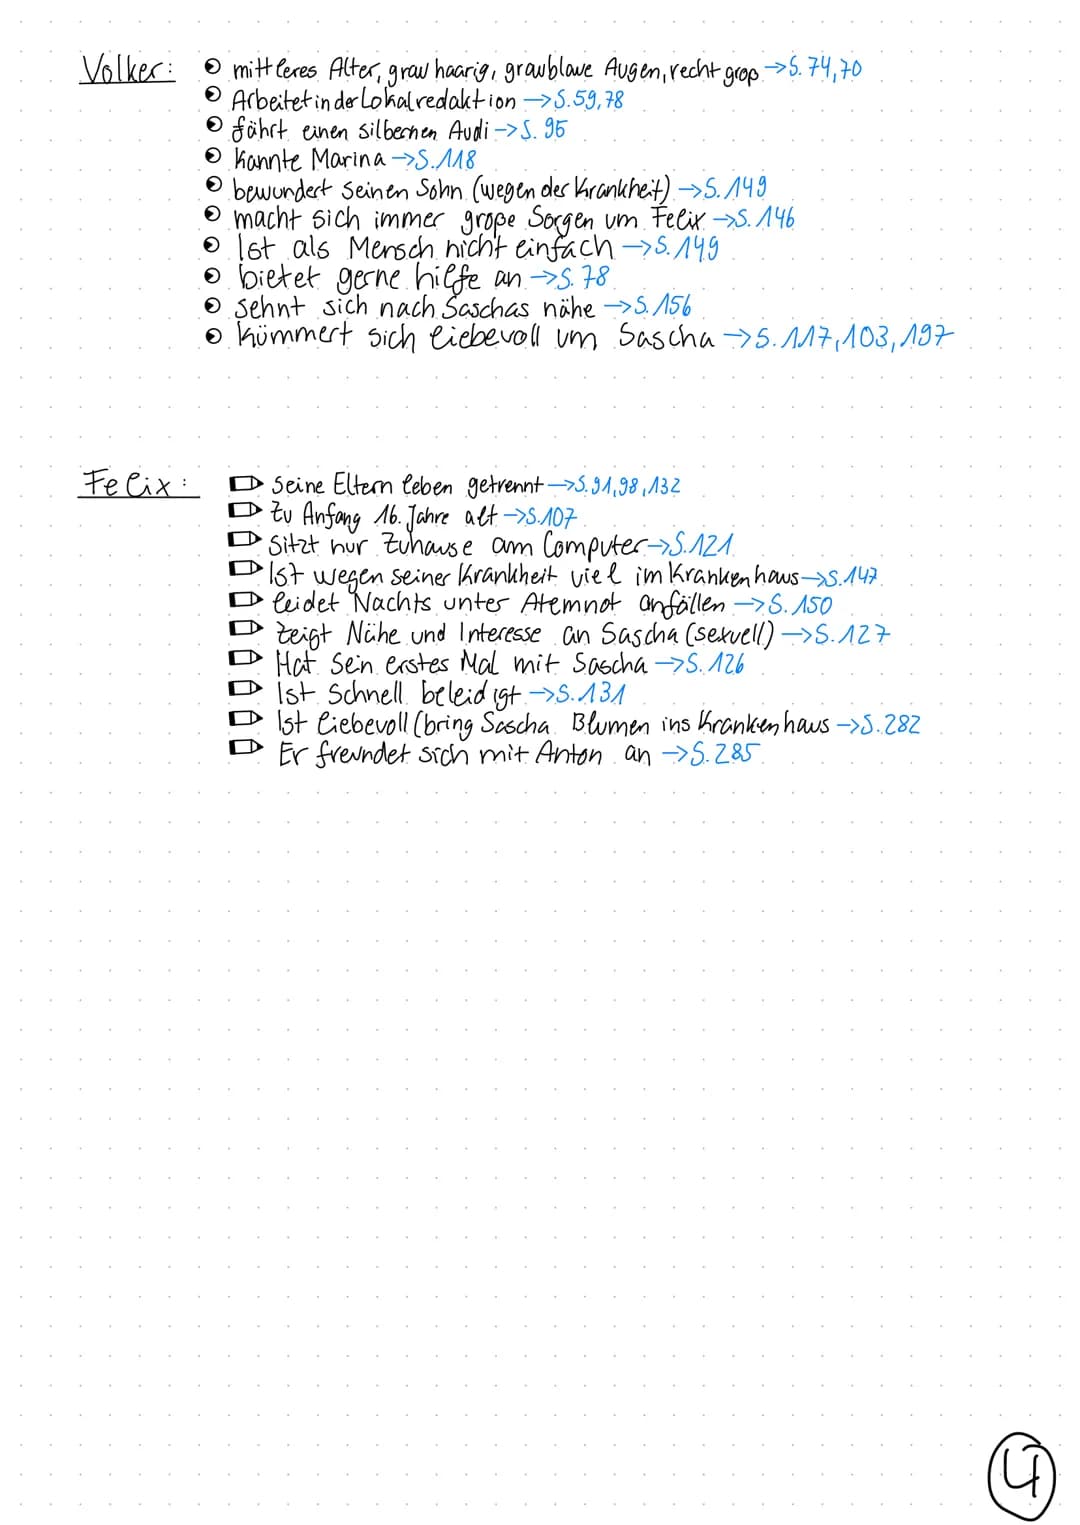 Volker:
mittleres Alter, grau haarig, graublaue Augen, recht groß →S. 74,70
Arbeitet in der Lokalredaktion →S.59,78
fährt einen silbernen Audi →S. 95
kannte Marina →S.118
bewundert seinen Sohn (wegen der Krankheit) →S. 149
macht sich immer große Sorgen um Felix →S. 146
Ist als Mensch nicht einfach →S. 149
bietet gerne hilfe an →S. 78
sehnt sich nach Saschas nähe →S. 156
kümmert sich liebevoll um Sascha →S. 117,103,197
Felix:
Seine Eltern leben getrennt →S.91,98,132
Zu Anfang 16. Jahre alt →S.107
Sitzt nur Zuhause am Computer →S.121
Ist wegen seiner Krankheit viel im Krankenhaus →S.147
leidet Nachts unter Atemnot anfällen →S. 150
Zeigt Nähe und Interesse an Sascha (sexuell) →S. 127
Hat Sein erstes Mal mit Sascha →S. 126
Ist Schnell beleidigt →S. 131
Ist liebevoll (bring Sascha Blumen ins Krankenhaus →S. 282
Er freundet sich mit Anton an →S. 285
4